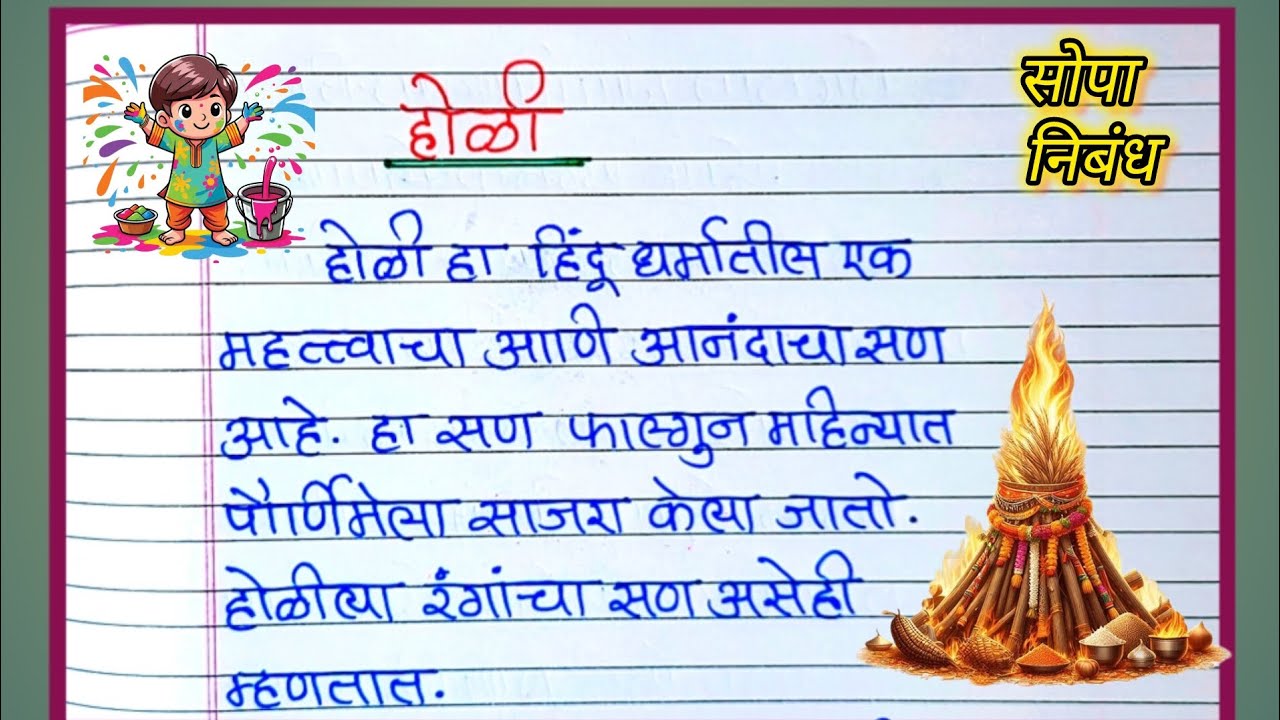 होळी
सोपा
निबंध
होळी हा हिंदू धर्मातील एक
महत्त्वाचा आणि आनंदाचा सण
आहे. हा सण फाल्गुन महिन्यात
पौर्णिमेला साजरा केला जातो.
होळीला रंगांचा सण असेही
म्हणतात.